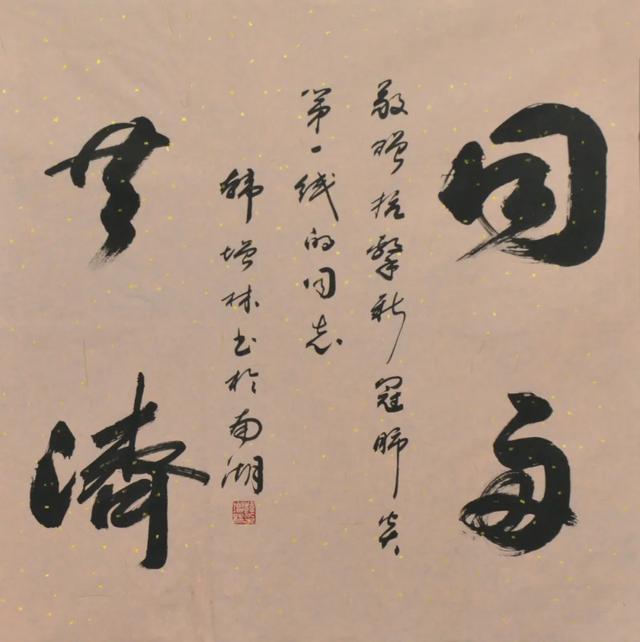 同舟
敬赠抗擊新冠肺炎
第一线的同志
韩增林书於南湖
共濟